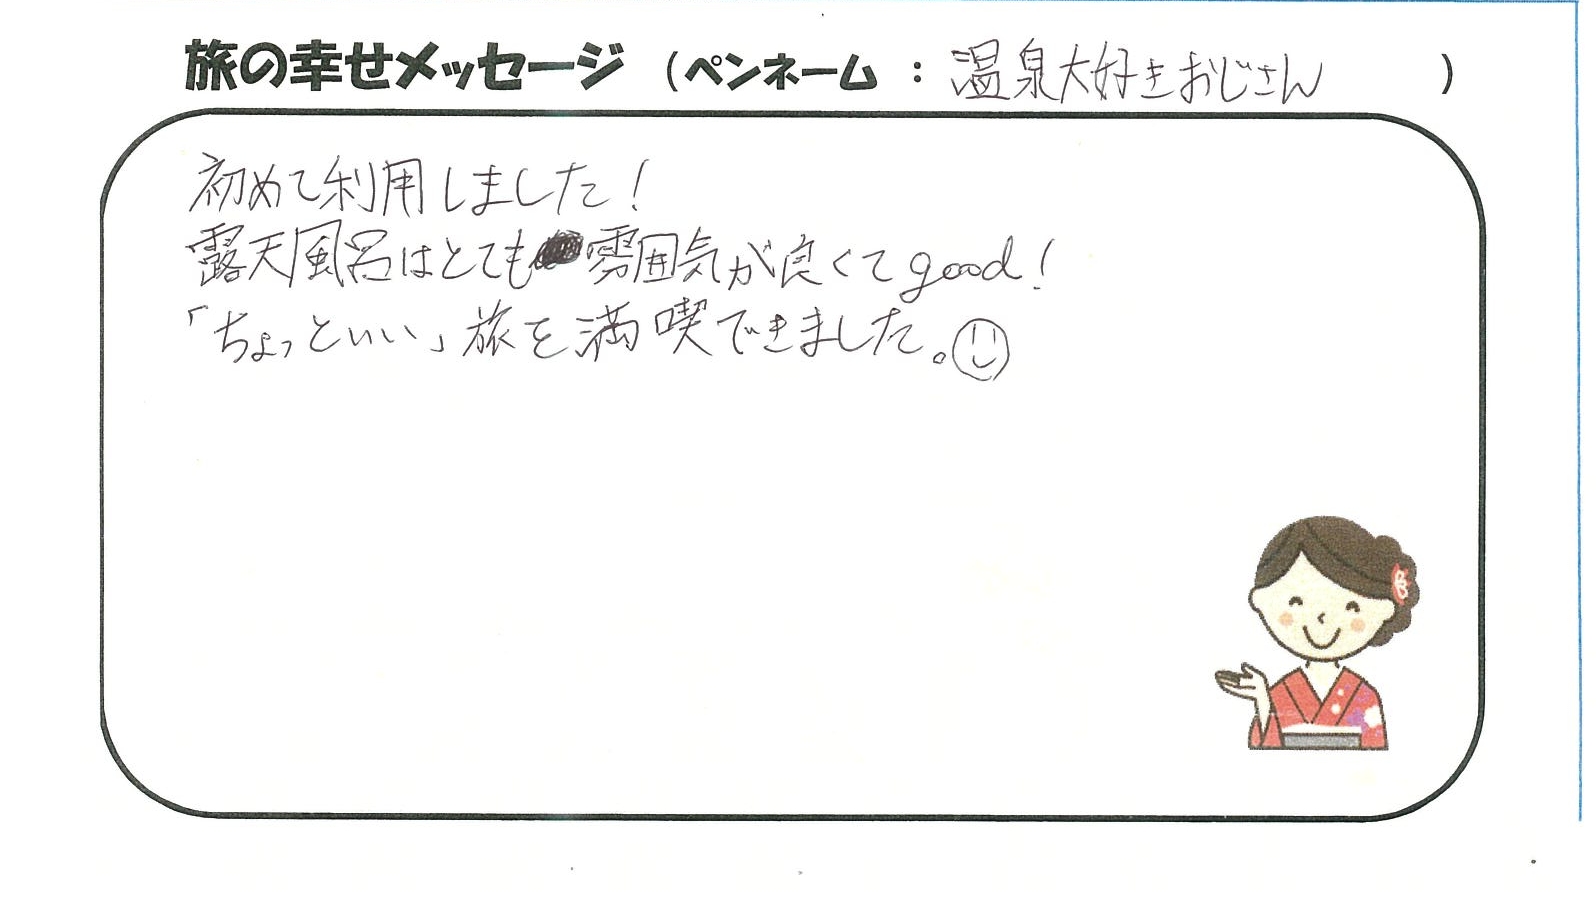 旅の幸せメッセージ (ペンネーム : 温泉大好きおじさん )
初めて利用しました!
露天風呂はとても雰囲気が良くてgood!
「ちょっといい」旅を満喫できました。